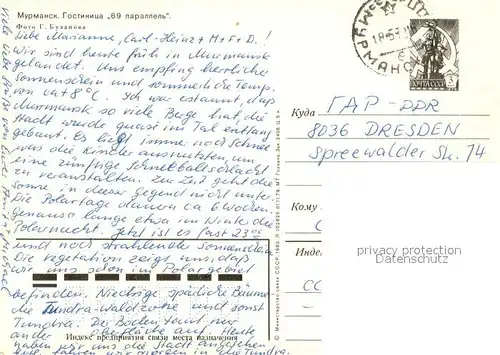 Мурманск. Гостиница „69 параллель".
Фото Г. Буланова
Liebe Marianne, Carl-Heinz + M + F + D.!
Wir sind heute früh in Murmansk
gelandet. Uns empfing herrlicher
Sonnenschein und sommerliche Temp.
von ca +8°C. Ich war erstaunt, daß
Murmansk so viele Berge hat, die
Stadt wurde quasi im Tal entlang
gebaut. Es liegt immer noch Schnee
was die Kinder ausnutzten, um
eine zünftige Schneeballschlacht
zu veranstalten. Zur Zeit geht die
Sonne in dieser Gegend nicht unter.
Die Polartage dauern ca 6 Wochen
genauso lange etwa im Winter die
Polarnacht. Jetzt ist es fast 23 00
und noch strahlender Sonnenschein
Die Vegetation zeigt uns, daß
wir uns schon im Polargebiet
befinden. Niedrige spärliche Bäume
die Tundra-Waldzone und sonst
Tundra. Der Boden taut nur an der
Oberfläche auf. Heute
haben wir uns die Stadt angesehen
fahren wir morgen in die Tundra.
МУРМАНСК
ПОЧТА СССР
Куда ГДР - DDR
8036 DRESDEN
Spreewalder Str. 74
Кому
Индекс
privat/copyright
Datenschutz
Индекс предприятия связи места назначения